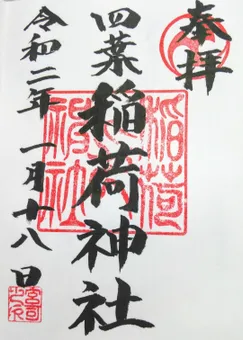 奉拝
四葉稲荷神社
令和二年 一月十八日